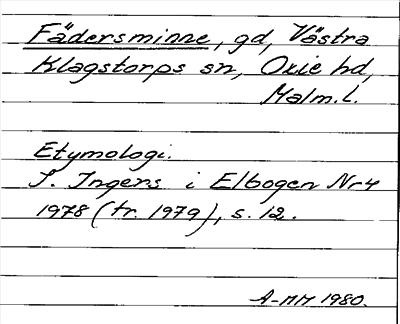 Fädersminne, gd, Västra
Klagstorps sn, Oxie hd,
Malm. l.
Etymologi.
I. Ingers i Elbogen Nr 4
1978 (tr. 1979), s. 12.
A-MM 1980.